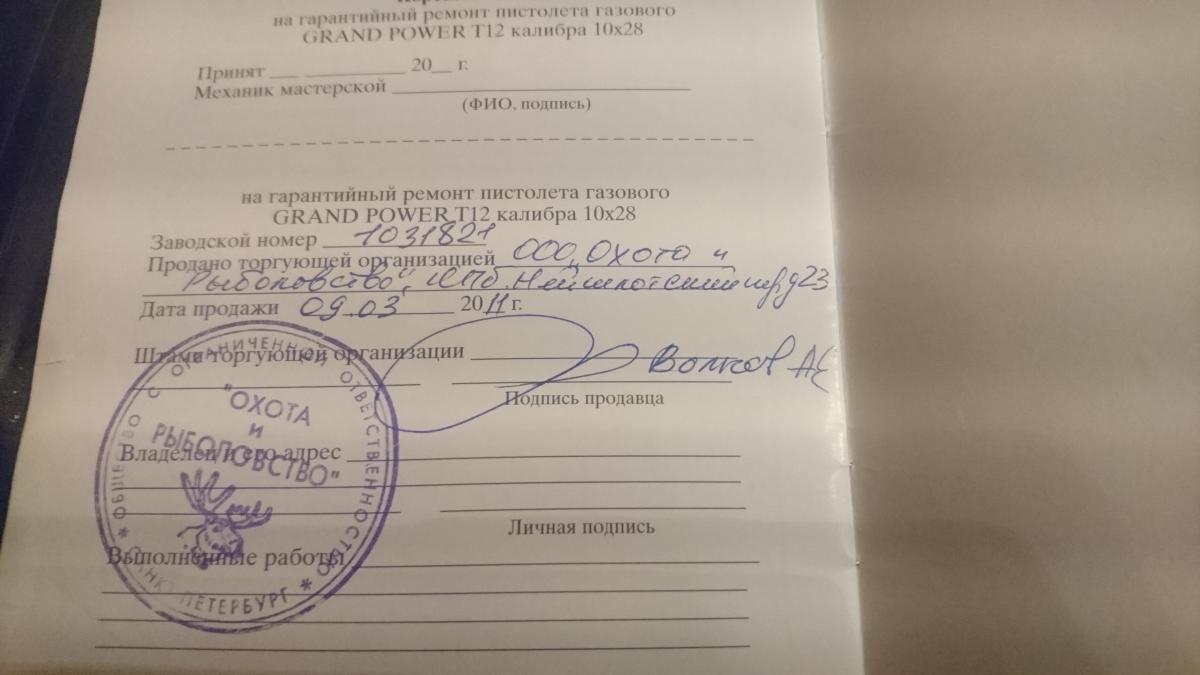 на гарантийный ремонт пистолета газового
GRAND POWER T12 калибра 10х28
Принят ___ __________ 20__ г.
Механик мастерской ______________________________
(ФИО, подпись)
на гарантийный ремонт пистолета газового
GRAND POWER T12 калибра 10х28
Заводской номер 1031821
Продано торгующей организацией ООО „Охота и
Рыболовство“, СПб. Нейшлотский пер д23
Дата продажи 09.03 2011 г.
Штамп торгующей организации Волков АЕ
Подпись продавца
ОБЩЕСТВО С ОГРАНИЧЕННОЙ ОТВЕТСТВЕННОСТЬЮ
"ОХОТА
и
РЫБОЛОВСТВО"
* САНКТ-ПЕТЕРБУРГ *
Владелец и его адрес
Личная подпись
Выполненные работы